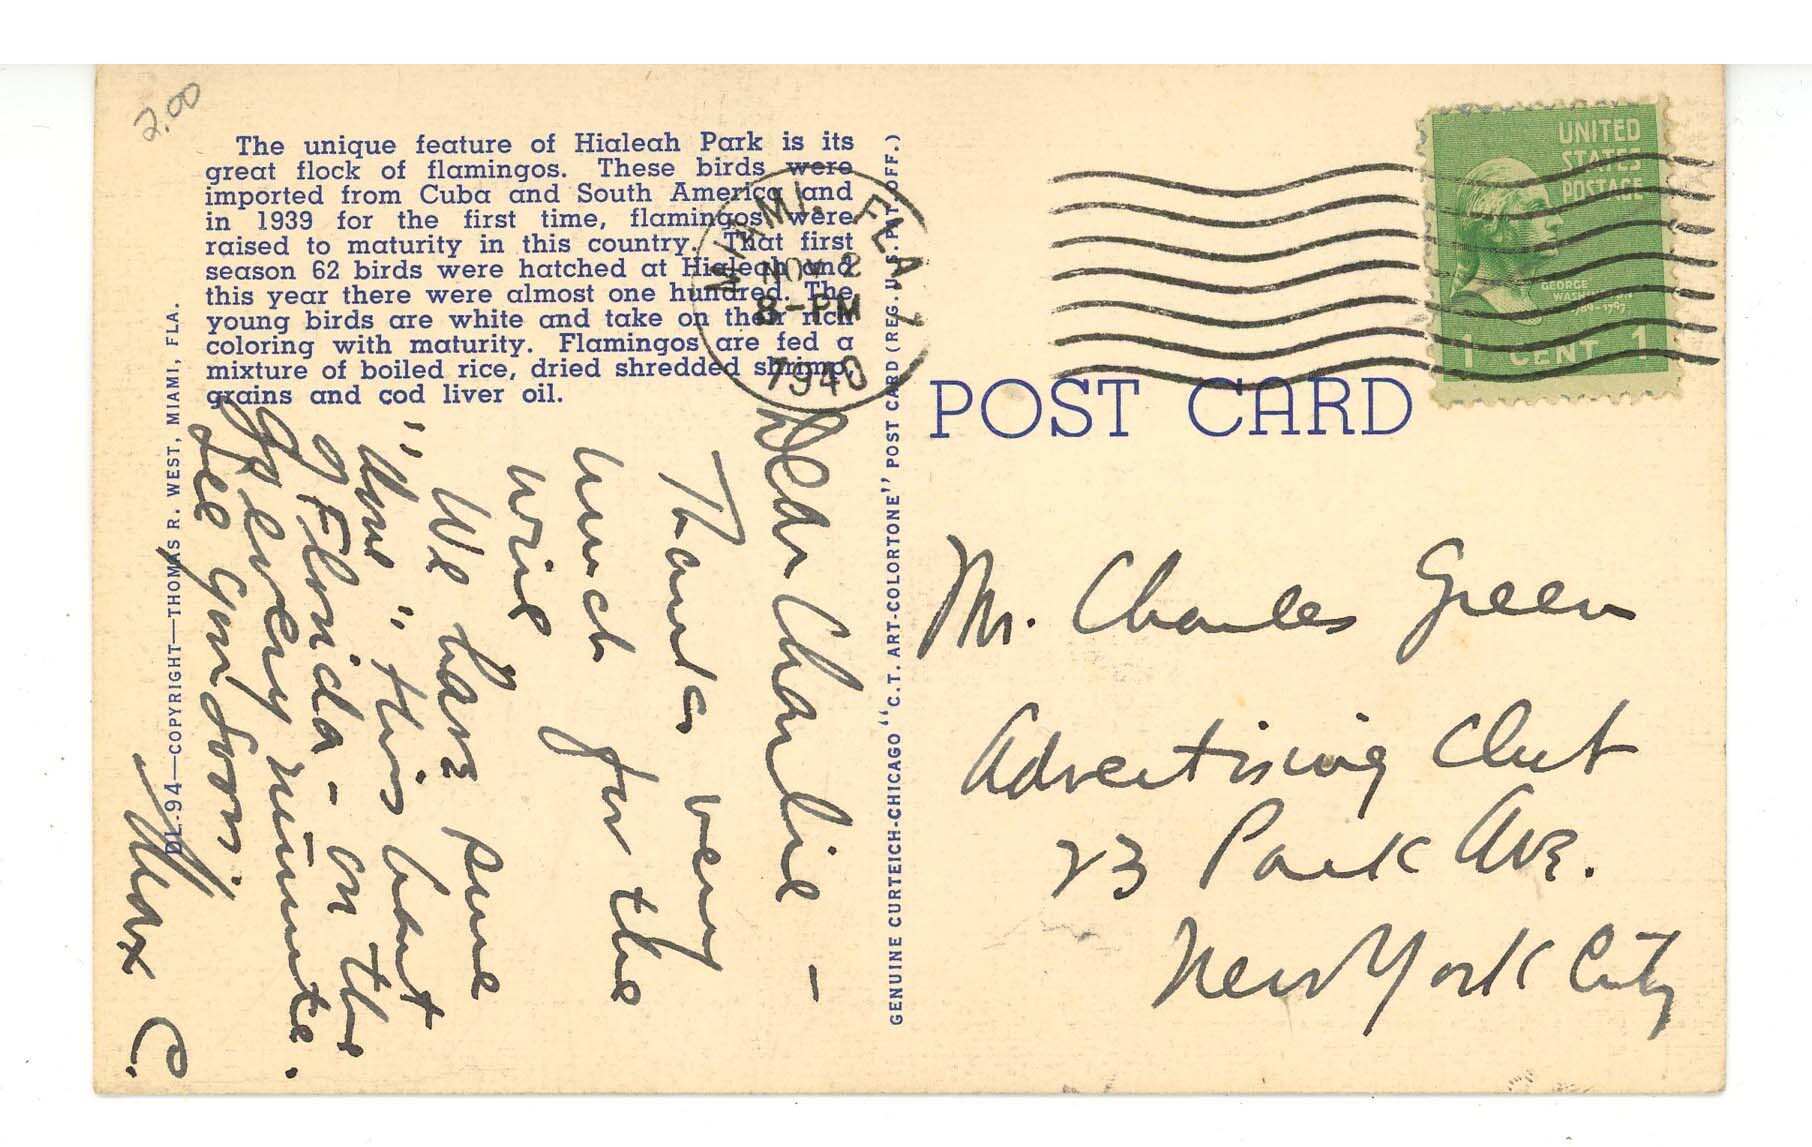 2.00
The unique feature of Hialeah Park is its
great flock of flamingos. These birds were
imported from Cuba and South America and
in 1939 for the first time, flamingos were
raised to maturity in this country. That first
season 62 birds were hatched at Hialeah and
this year there were almost one hundred. The
young birds are white and take on their rich
coloring with maturity. Flamingos are fed a
mixture of boiled rice, dried shredded shrimp,
grains and cod liver oil.
DL.94—COPYRIGHT—THOMAS R. WEST, MIAMI, FLA.
Dear Charlie –
Thanks very
much for the
wire
We have sure
"done" this part
of Florida – on the
go every minute.
See you soon.
Max C.
GENUINE CURTEICH-CHICAGO "C.T. ART-COLORTONE" POST CARD (REG. U.S. PAT. OFF.)
MIAMI, FLA
NOV 2
8-PM
1940
UNITED
STATES
POSTAGE
GEORGE
WASHINGTON
1789-1797
1 CENT 1
POST CARD
Mr. Charles Green
Advertising Club
23 Park Ave.
New York City